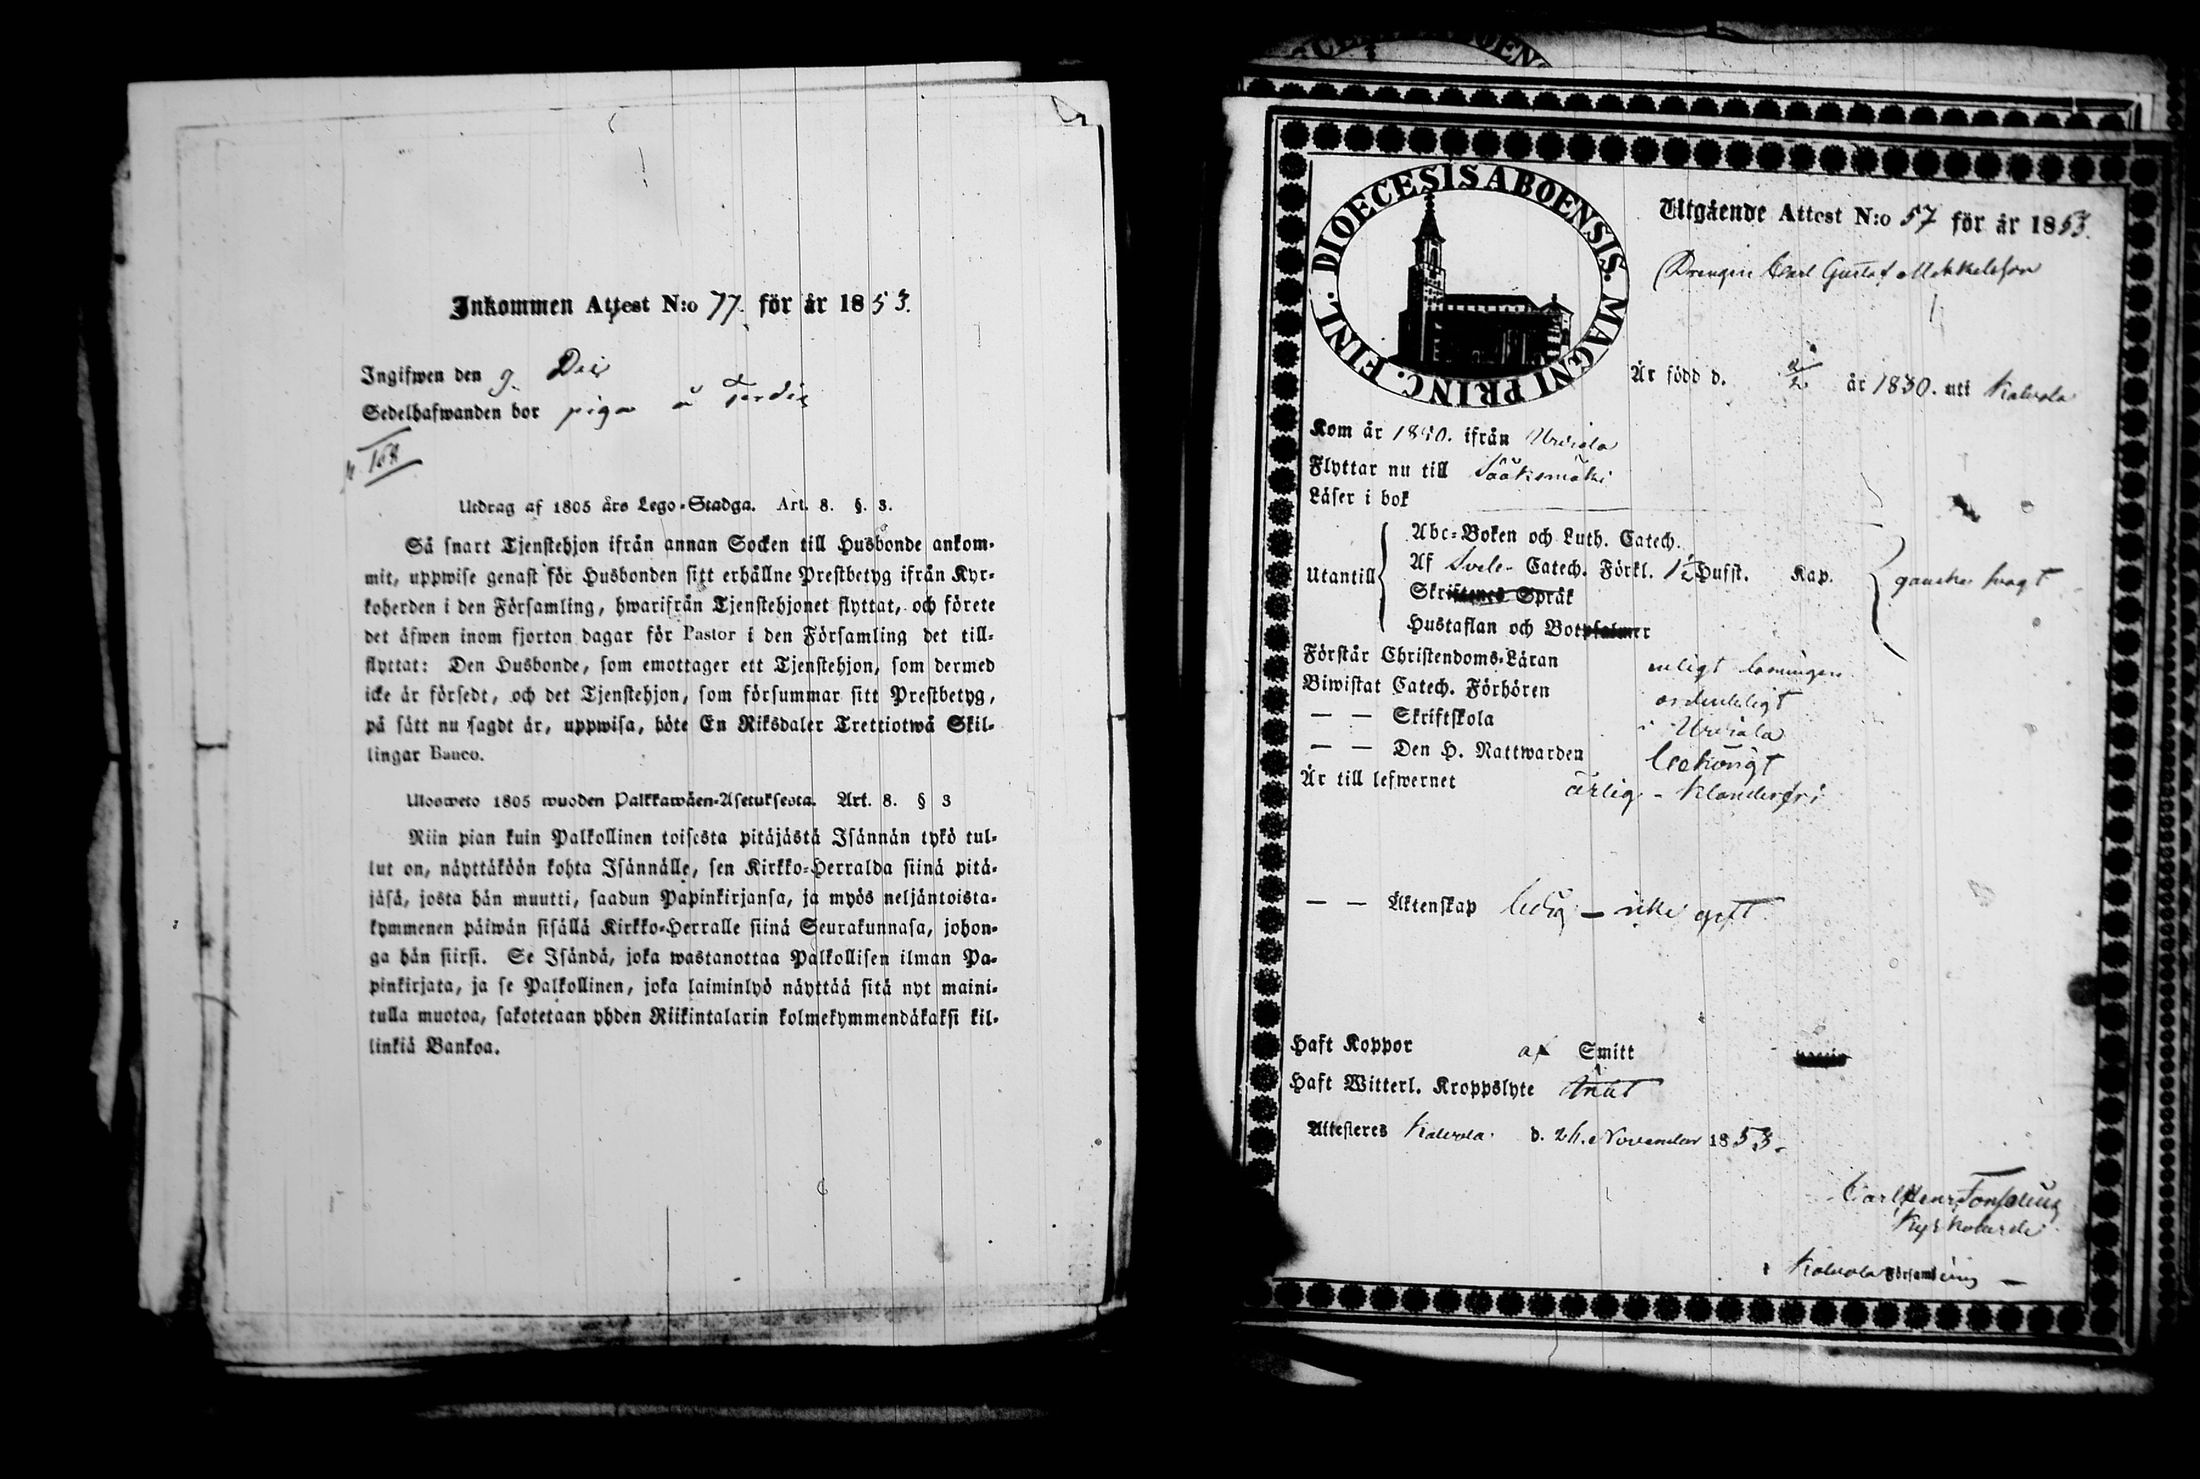 Inkommen Attest N:o 77. för år 1853.
Ingifwen den 9. Dec
Sedelhafwanden bor piga å
p. 158
Utdrag af 1805 års Lego-Stadga. Art. 8. §. 3.
Så snart Tjenstehjon ifrån annan Socken till Husbonde ankom-
mit, uppwise genast för Husbonden sitt erhållne Prestbetyg ifrån Kyr-
koherden i den Församling, hwarifrån Tjenstehjonet flyttat, och förete
det äfwen inom fjorton dagar för Pastor i den Församling det till-
flyttat: Den Husbonde, som emottager ett Tjenstehjon, som dermed
icke är försedt, och det Tjenstehjon, som försummar sitt Prestbetyg,
på sätt nu sagdt är, uppwisa, böte En Riksdaler Trettiotwå Skil-
lingar Banco.
Ulosweto 1805 wuoden Palkkawäen-Asetuksesta. Art. 8. § 3
Niin pian kuin Palkollinen toisesta pitäjästä Isännän tykö tul-
lut on, näyttäköön kohta Isännälle, sen Kirkko-Herralda siinä pitä-
jäsä, josta hän muutti, saadun Papinkirjansa, ja myös neljäntoista-
kymmenen päiwän sisällä Kirkko-Herralle siinä Seurakunnasa, johon-
ga hän siirsi. Se Isändä, joka wastanottaa Palkollisen ilman Pa-
pinkirjata, ja se Palkollinen, joka laiminlyö näyttää sitä nyt maini-
tulla muotoa, sakotetaan yhden Riikintalarin kolmekymmendäkaksi kil-
linkiä Bankoa.
DIOECESIS ABOENSIS. MAGNI PRINC. FINL.
Utgående Attest N:o 57 för år 1853.
Drengen Carl Gustaf Michelsson
Är född d. år 1830. uti Kalvola
Kom år 1850. ifrån Urdiala
Flyttar nu till Sääksmäki
Läser i bok
Utantill
Abc-Boken och Luth. Catech.
Af Svebe. Catech. Förkl. 1½ Hufst. Kap.
ganska svagt
Skriftenes Språk
Hustaflan och Botpsalmer
Förstår Christendoms-Läran enligt läsningen
Biwistat Catech. Förhören ordenteligt
— — Skriftskola i Urdiala
— — Den H. Nattwarden behörigt
Är till lefwernet ärlig - klanderfri
— — Äktenskap ledig — icke gift
Haft Koppor af Smitt
Haft Witterl. Kroppslyte intet
Attesteres Kalvola d. 26. November 1853.
Carl Henr.
Kyrkoherde
i Kalvola Församling —